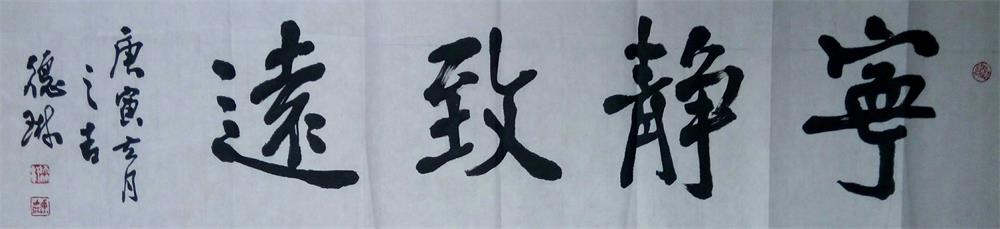 寧靜致遠
庚寅七月
之吉
德琳